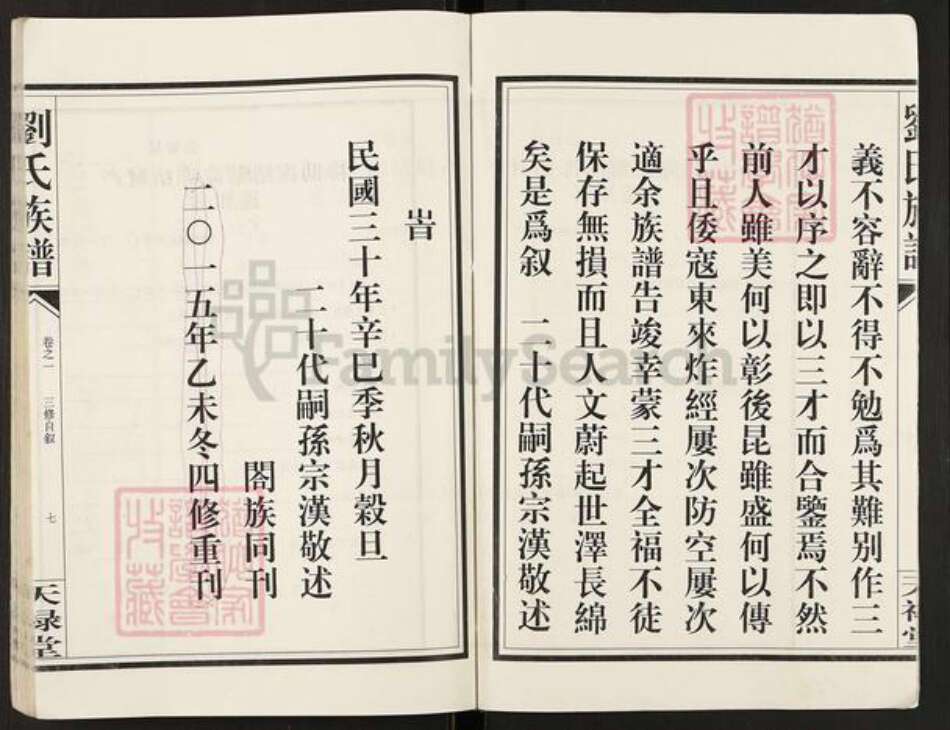 義不容辭不得不勉爲其難別作三
才以序之即以三才而合鑒焉不然
前人雖美何以彰後昆雖盛何以傳
乎且倭寇東來炸經屢次防空屢次
適余族譜告竣幸蒙三才全福不徒
保存無損而且人文蔚起世澤長綿
矣是爲叙 二十代嗣孫宗漢敬述
旹
民國三十年辛巳季秋月穀旦
二十代嗣孫宗漢敬述
閤族同刊
二〇一五年乙未冬四修重刊
劉氏族譜
卷之一 三修自叙
七
天禄堂
FamilySearch